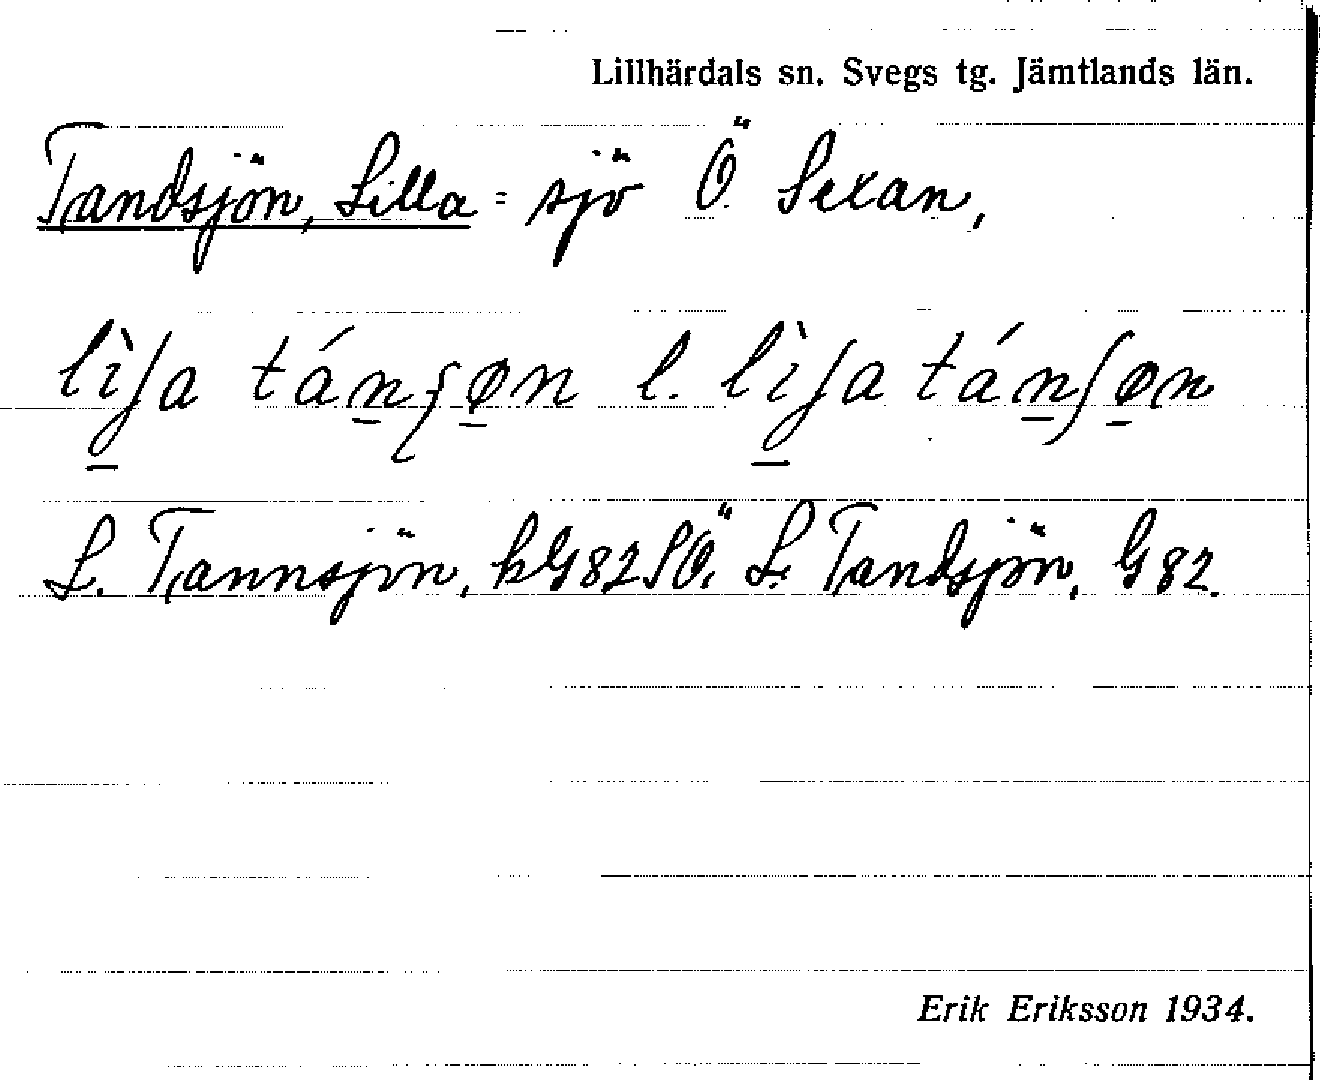 Lillhärdals sn. Svegs tg. Jämtlands län.
Tandsjön, Lilla = sjö Ö Sexan,
lìʃa tánʂøn l. lìʃa tánʃøn
L. Tannsjön, hG82SÖ. L. Tandsjön, G82.
Erik Eriksson 1934.